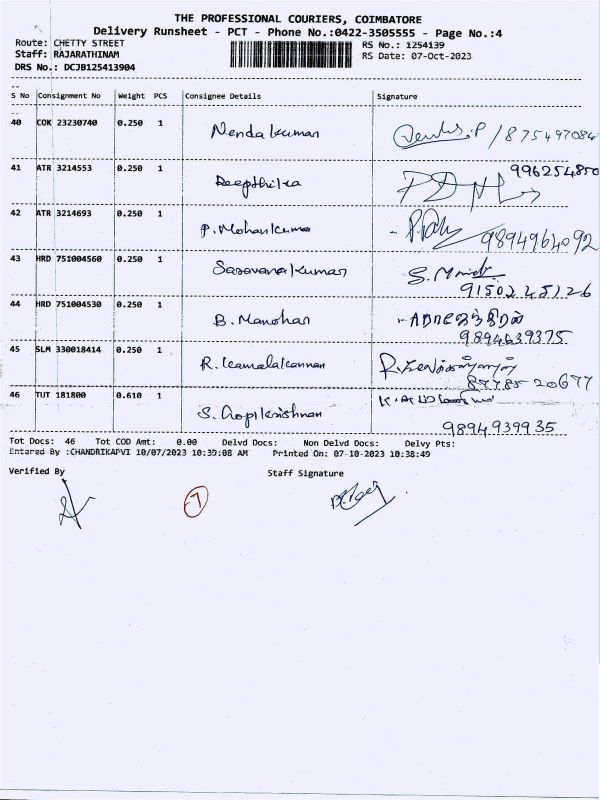 THE PROFESSIONAL COURIERS, COIMBATORE
Delivery Runsheet - PCT - Phone No.:0422-3505555 - Page No.:4
Route: CHETTY STREET
RS No.: 1254139
Staff: RAJARATHINAM
RS Date: 07-Oct-2023
DRS No.: DCJB125413904
S No Consignment No Weight PCS Consignee Details Signature
40 COK 23230740 0.250 1 Nenda kumar /875497084
41 ATR 3214553 0.250 1 Deepthika 996254850
42 ATR 3214693 0.250 1 P. Mohankumar 9894964092
43 HRD 751004560 0.250 1 Saravanakumar S.
9150245126
44 HRD 751004530 0.250 1 B. Manohar
9894639375
45 SLM 330018414 0.250 1 R. Kamalakannan
8778520677
46 TUT 181800 0.610 1 S. Gopikrishnan
9894939935
Tot Docs: 46 Tot COD Amt: 0.00 Delvd Docs: Non Delvd Docs: Delvy Pts:
Entered By :CHANDRIKAPVI 10/07/2023 10:39:08 AM Printed On: 07-10-2023 10:38:49
Verified By Staff Signature
7